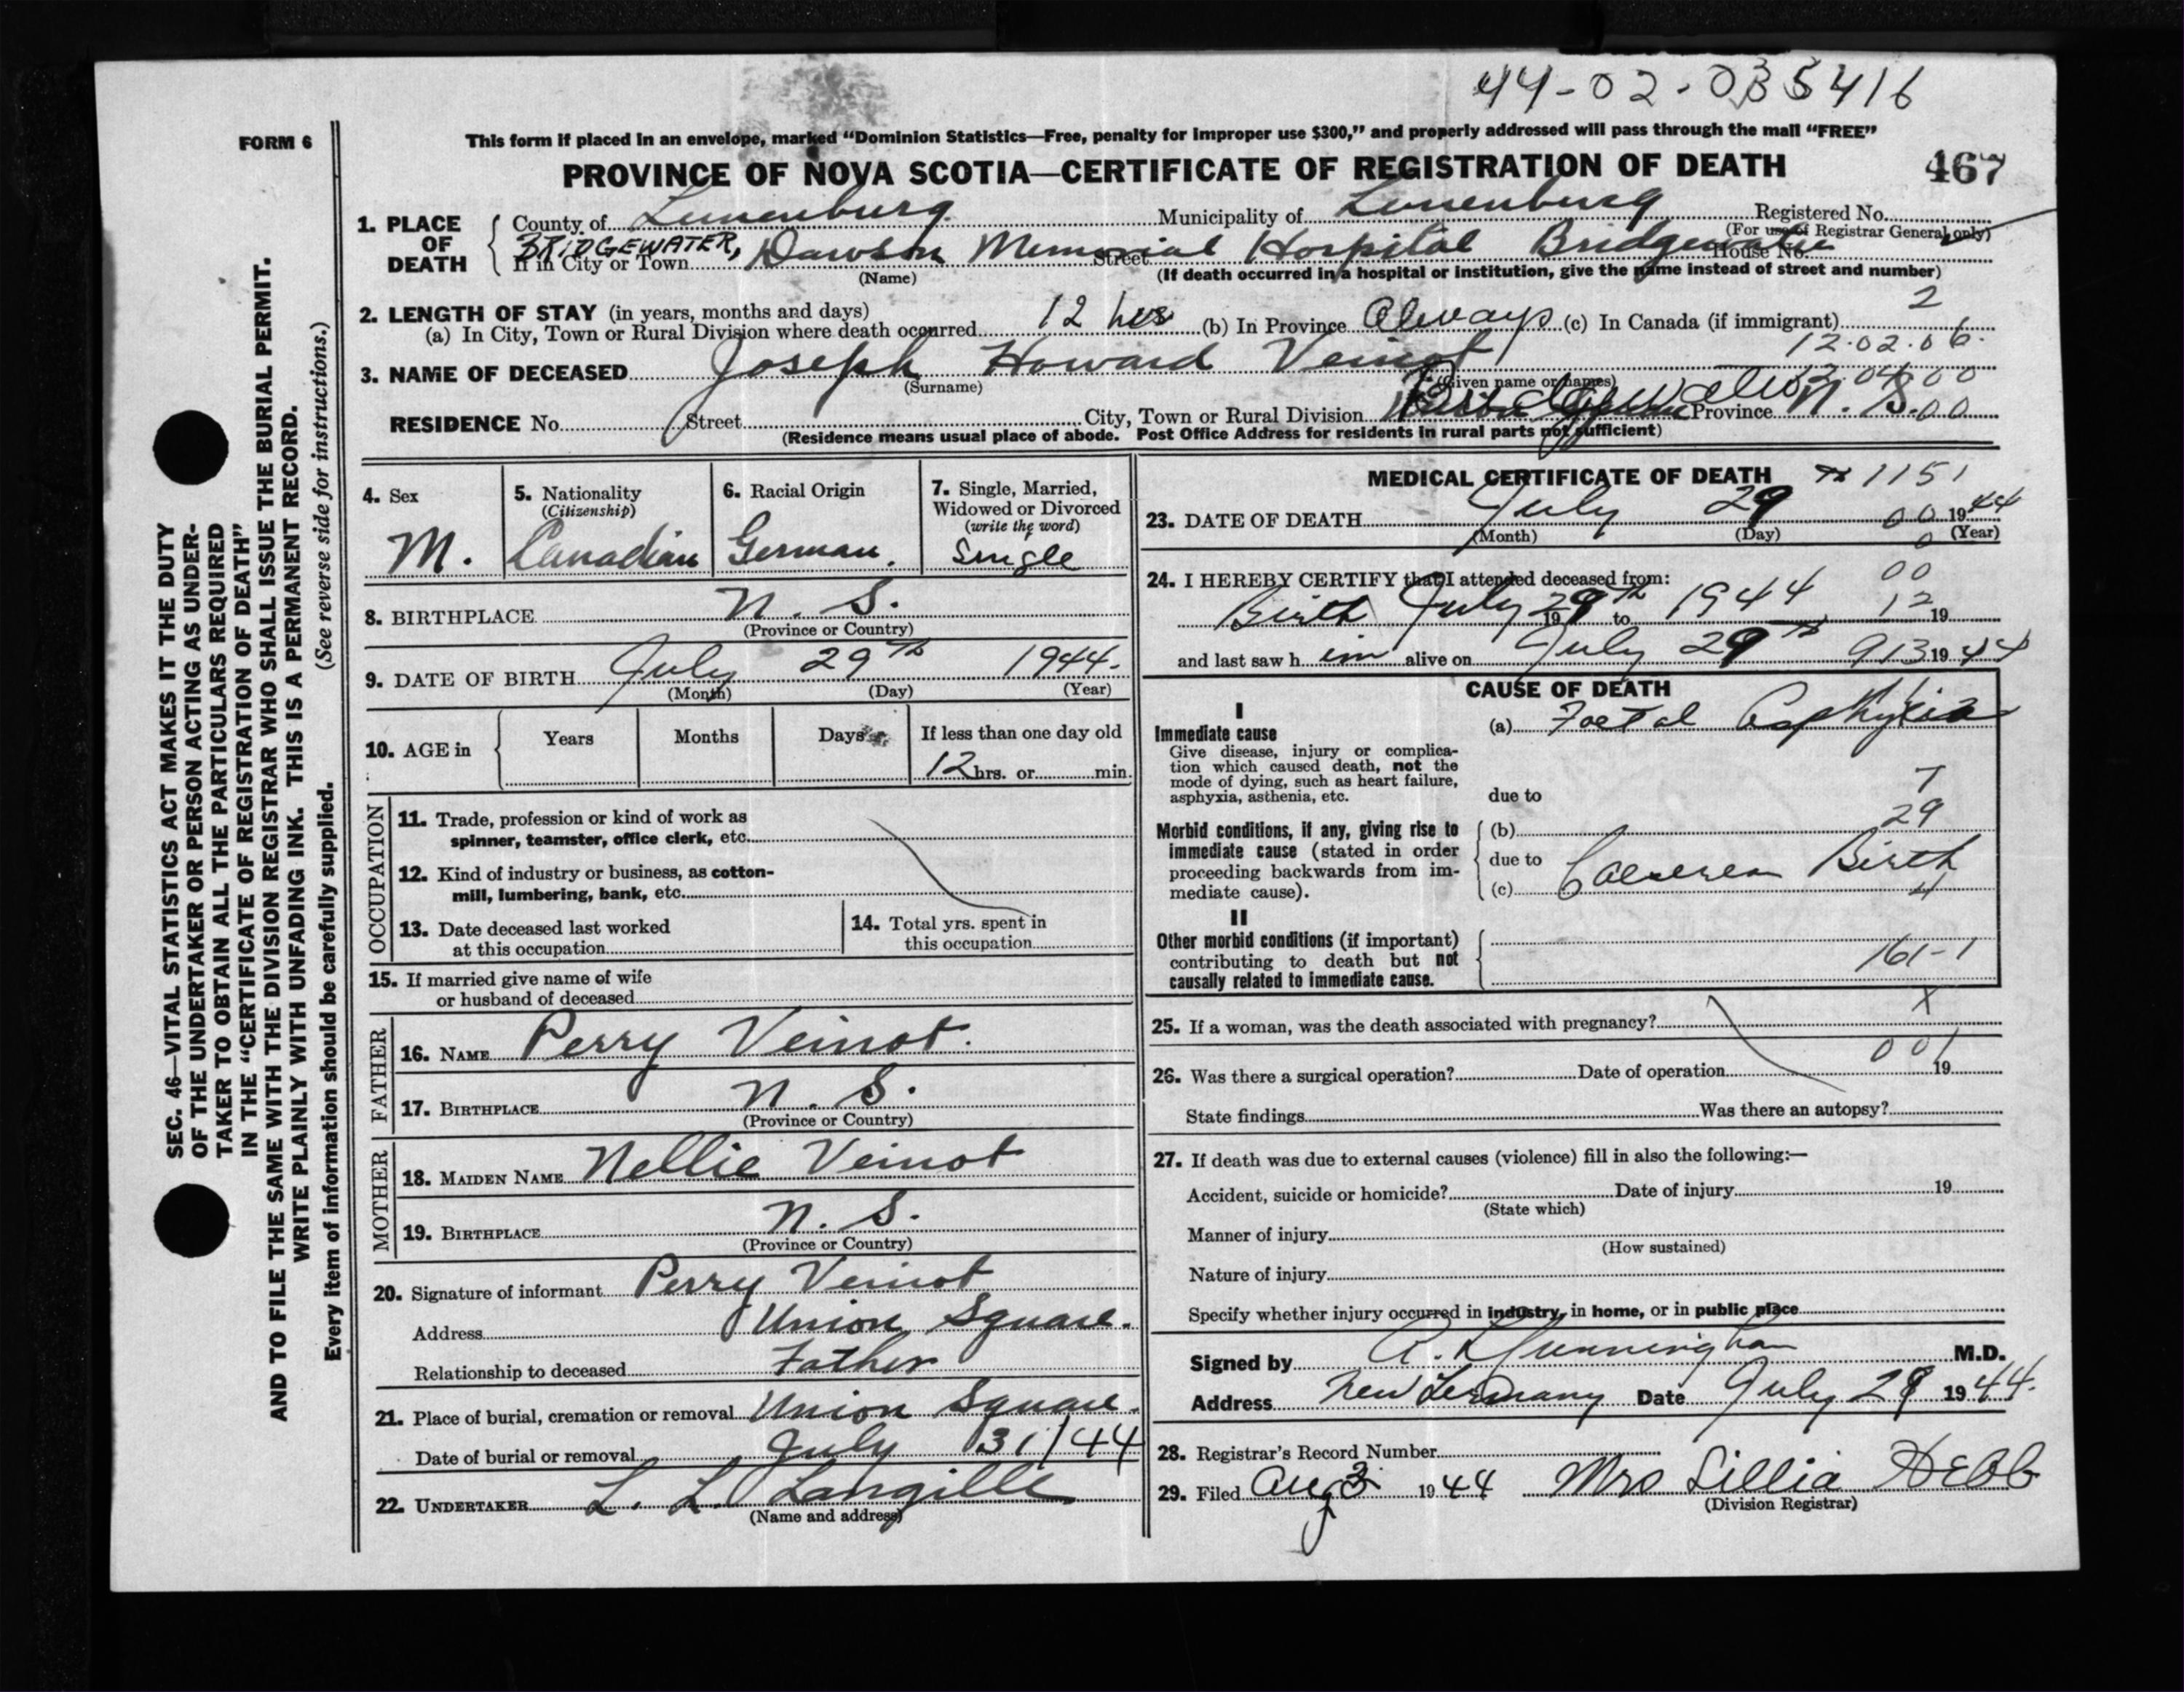 44-02-035416
FORM 6
This form if placed in an envelope, marked "Dominion Statistics—Free, penalty for improper use $300," and properly addressed will pass through the mail "FREE"
PROVINCE OF NOVA SCOTIA—CERTIFICATE OF REGISTRATION OF DEATH
467
1. PLACE OF DEATH
County of Lunenburg Municipality of Lunenburg Registered No.
(For use of Registrar General only)
BRIDGEWATER,
If in City or Town Dawson Memorial Hospital Bridgewater Street House No.
(Name) (If death occurred in a hospital or institution, give the name instead of street and number)
2. LENGTH OF STAY (in years, months and days) 2
(a) In City, Town or Rural Division where death occurred 12 hrs (b) In Province Always (c) In Canada (if immigrant)
12.02.06.
3. NAME OF DECEASED Joseph Howard Veinot
(Surname) (Given name or names)
RESIDENCE No. Street City, Town or Rural Division Province N. S. 00
(Residence means usual place of abode. Post Office Address for residents in rural parts not sufficient)
4. Sex M.
5. Nationality (Citizenship) Canadian
6. Racial Origin German.
7. Single, Married, Widowed or Divorced (write the word) Single
8. BIRTHPLACE N. S.
(Province or Country)
9. DATE OF BIRTH July 29th 1944.
(Month) (Day) (Year)
10. AGE in Years Months Days If less than one day old
12 hrs. or min.
OCCUPATION
11. Trade, profession or kind of work as spinner, teamster, office clerk, etc.
12. Kind of industry or business, as cotton-mill, lumbering, bank, etc.
13. Date deceased last worked at this occupation
14. Total yrs. spent in this occupation
15. If married give name of wife or husband of deceased
FATHER
16. NAME Perry Veinot.
17. BIRTHPLACE N. S.
(Province or Country)
MOTHER
18. MAIDEN NAME Nellie Veinot
19. BIRTHPLACE N. S.
(Province or Country)
20. Signature of informant Perry Veinot
Address Union Square.
Relationship to deceased Father
21. Place of burial, cremation or removal Union Square.
Date of burial or removal July 31/44
22. UNDERTAKER L. L. Langille
(Name and address)
MEDICAL CERTIFICATE OF DEATH 1151
23. DATE OF DEATH July 29 00 1944
(Month) (Day) (Year)
0
24. I HEREBY CERTIFY that I attended deceased from: 00
Birth July 29th 19 to 1944 12 19
and last saw him alive on July 29th 913 1944
CAUSE OF DEATH
I
Immediate cause
Give disease, injury or complication which caused death, not the mode of dying, such as heart failure, asphyxia, asthenia, etc.
(a) Foetal Asphyxia
due to 7
29
Morbid conditions, if any, giving rise to immediate cause (stated in order proceeding backwards from immediate cause).
(b)
due to
(c) Caeserean Birth
4
II
Other morbid conditions (if important) contributing to death but not causally related to immediate cause.
161-1
25. If a woman, was the death associated with pregnancy? X
001
26. Was there a surgical operation? Date of operation 19
State findings Was there an autopsy?
27. If death was due to external causes (violence) fill in also the following:—
Accident, suicide or homicide? Date of injury 19
(State which)
Manner of injury
(How sustained)
Nature of injury
Specify whether injury occurred in industry, in home, or in public place
Signed by M.D.
Address New Germany Date July 29 1944.
28. Registrar's Record Number
29. Filed Aug 3 1944 Mrs Lillia Hebb
(Division Registrar)
SEC. 46—VITAL STATISTICS ACT MAKES IT THE DUTY
OF THE UNDERTAKER OR PERSON ACTING AS UNDER-
TAKER TO OBTAIN ALL THE PARTICULARS REQUIRED
IN THE "CERTIFICATE OF REGISTRATION OF DEATH"
AND TO FILE THE SAME WITH THE DIVISION REGISTRAR WHO SHALL ISSUE THE BURIAL PERMIT.
WRITE PLAINLY WITH UNFADING INK. THIS IS A PERMANENT RECORD.
Every item of information should be carefully supplied. (See reverse side for instructions.)